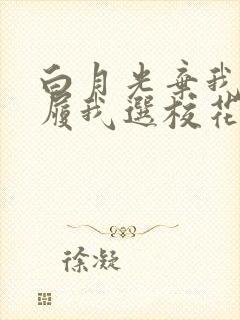 白月光弃我
履我选校花
徐凝